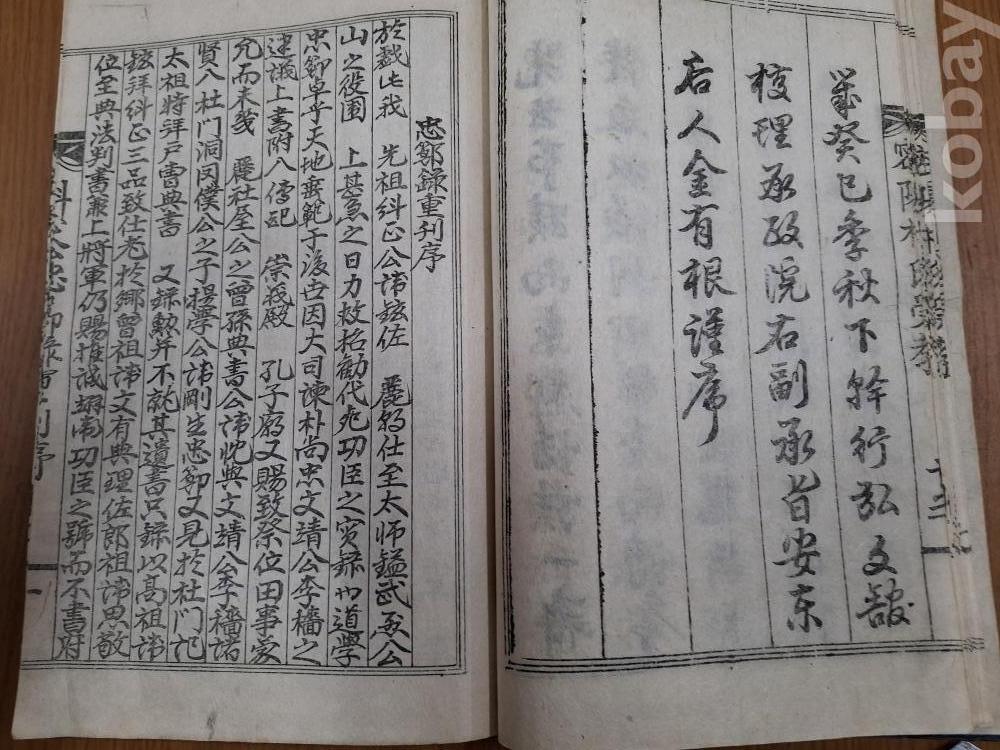 歲癸巳季秋下澣行弘文館
校理承政院右副承旨安东
后人金有根謹序
十三
忠節錄重刊序
於戱此我 先祖糾正公諱鉉佐 麗朝仕至太師鎰武公
山之役圍 上甚急之日力救拓勸代死功臣之實錄也道學
忠節卓乎天地垂範于後世因大司諫朴尚忠文靖公李穡之
建議上書附入傳記 崇義殿 孔子廟又賜致祭位田事蒙
允而未幾 麗社屋公之曾孫典書公諱忱與文靖公李穡諸
賢入杜門洞罔僕公之子提學公諱剛生忠節又見於杜門記
太祖特拜戶曹典書 又錄勳并不就其遺書只錄以高祖諱
鉉拜糾正三品致仕老於鄉曾祖諱文有典理佐郎祖諱思敬
位至典法判書兼上將軍仍賜推誠翊衛功臣之號而不書府
一
kobay